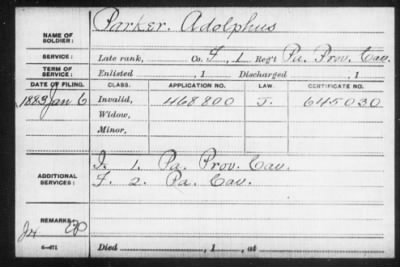 NAME OF SOLDIER: Parker, Adolphus
SERVICE: Late rank, Co. F, 1 Reg't Pa. Prov. Cav.
TERM OF SERVICE: Enlisted , 1 Discharged , 1
DATE OF FILING. CLASS. APPLICATION NO. LAW. CERTIFICATE NO.
1883 Jan 6 Invalid, 468800 J. 645030
Widow,
Minor,
ADDITIONAL SERVICES: I. 1. Pa. Prov. Cav.
F. 2. Pa. Cav.
REMARKS:
Died , 1 , at